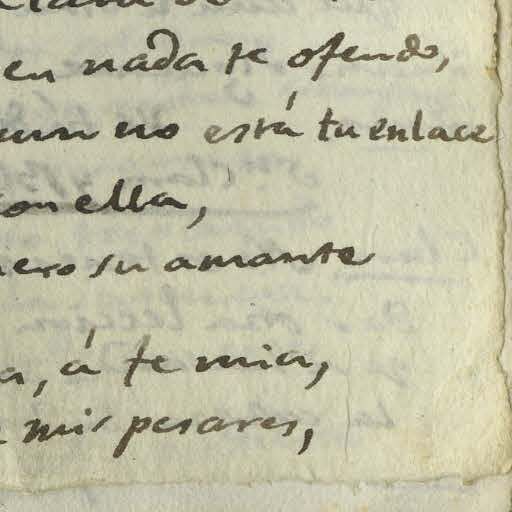 en nada te ofendo,
aun no está tu enlace
con ella,
pero su amante
a, á fe mia,
mis pesares,